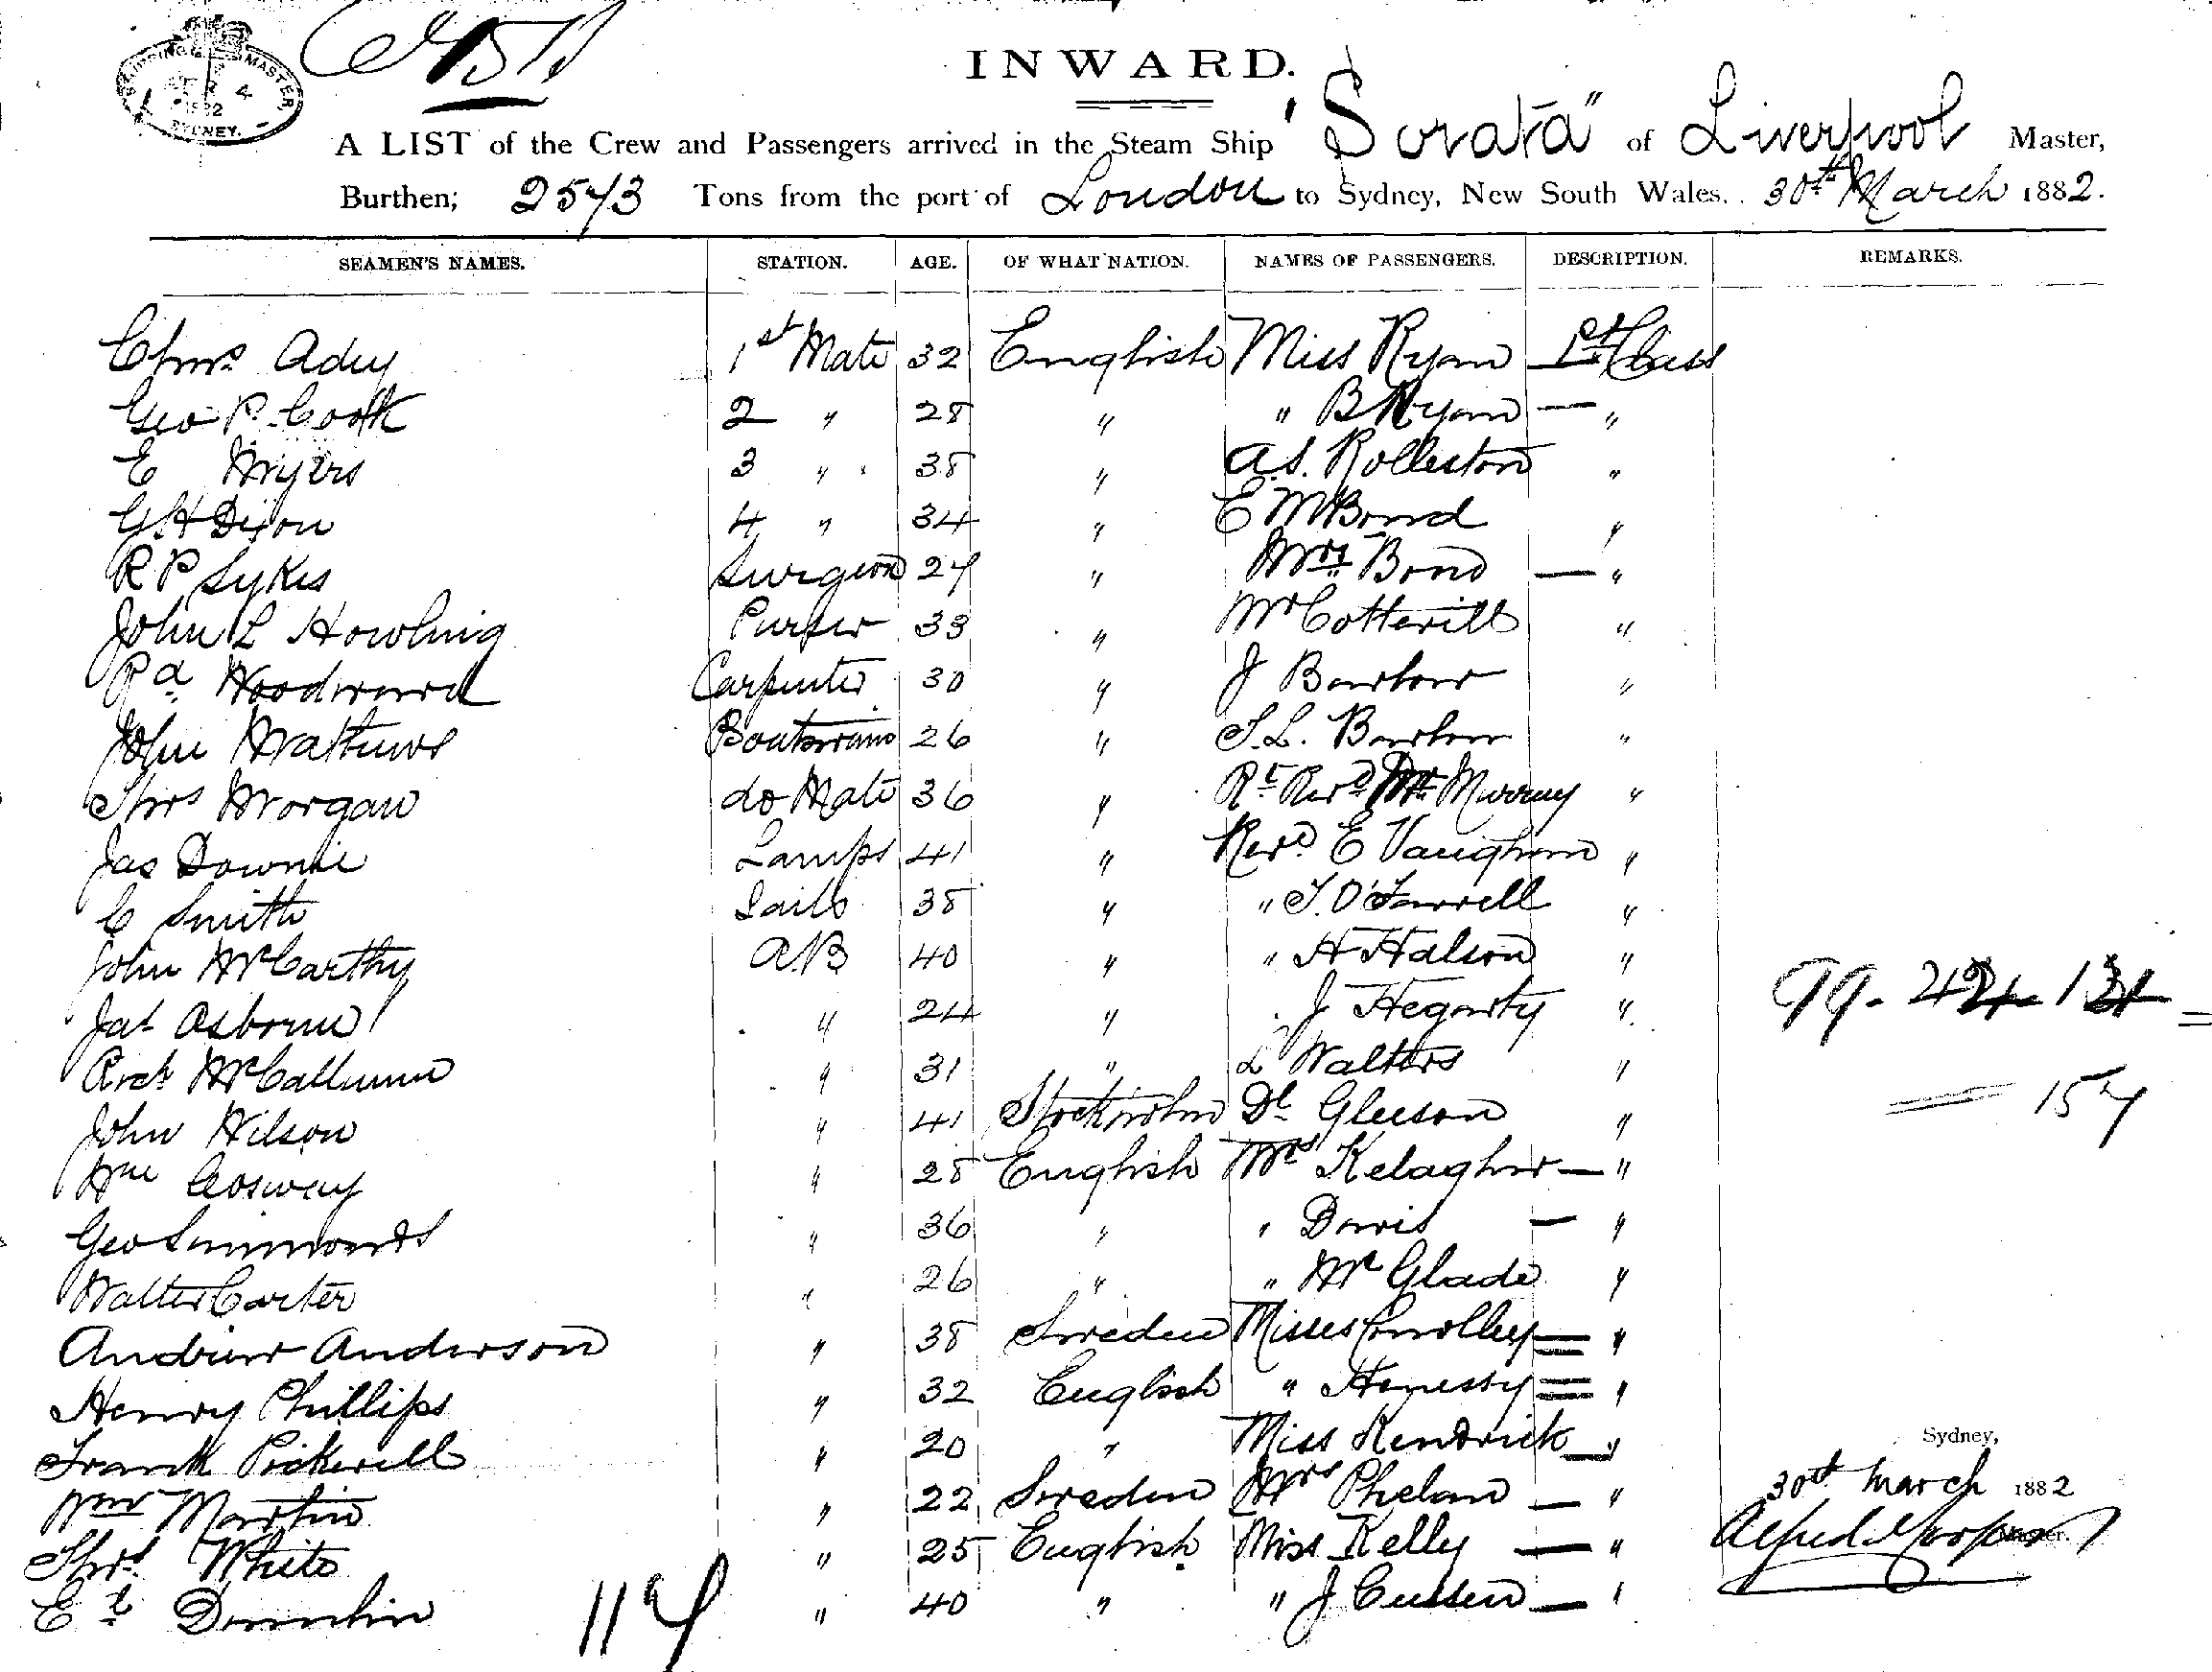 SHIPPING MASTER,
4
1882
SYDNEY.
INWARD.
A LIST of the Crew and Passengers arrived in the Steam Ship "Sorata" of Liverpool Master,
Burthen; 2573 Tons from the port of London to Sydney, New South Wales. 30th March 1882.
SEAMEN'S NAMES. STATION. AGE. OF WHAT NATION. NAMES OF PASSENGERS. DESCRIPTION. REMARKS.
Ady 1st Mate 32 English Miss Ryan — 1st Class
Geo P. Cook 2 " 28 " " B Ryan — "
E Myers 3 " 38 " A.S. Rolleston "
G H Dixon 4 " 34 " E M Bond "
R P Sykes Surgeon 27 " Mrs Bond — "
John L Howling Purser 33 " Mr Cotterill "
Rd Woodward Carpenter 30 " J Barlow "
John Mathews Boatswain 26 " T.L. Barlow "
Thos Morgan do Mate 36 " Rt Revd Murray "
Jas Downie Lamps 41 " Revd E Vaughan "
C Smith Sails 38 " " T. O'Farrell "
John McCarthy A.B 40 " " H Halson "
Jas Osborne " 24 " J Hegarty " 99. 42
Arch McCallum " 31 " L Walters "
John Wilson " 41 Stockholm Dl Gleeson " = 157
Wm Cosway " 28 English Mrs Kelagher — "
Geo Simmonds " 36 " " Davis — "
Walter Carter " 26 " " McGlade "
Andrew Anderson " 38 Sweden Misses Conolley "
Henry Phillips " 32 English " Henessy "
Frank Pickerell " 20 " Miss Kendrick — " Sydney,
Wm Martin " 22 Sweden Mrs Phelan — " 30th March 1882
Thos White " 25 English Miss Kelly — " Alfred
Ed " 40 " " J Cussen — "
117